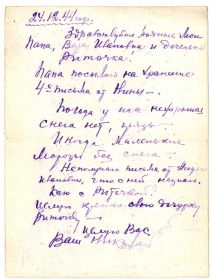 24.12.44 года.
Здравствуйте родные мои
Папа, Вера Ивановна и доченька
Риточка.
Папа посылаю на хранение
4 письма от Нины
Погода у нас нехорошая
снега нет, грязь
Иногда маленькие
морозы без снега
Не получаю письма от
Ивановны, что с ней
Как с Риточкой.
Целую крепко свою дочурку
Риточку
Целую Вас
Ваш Николай